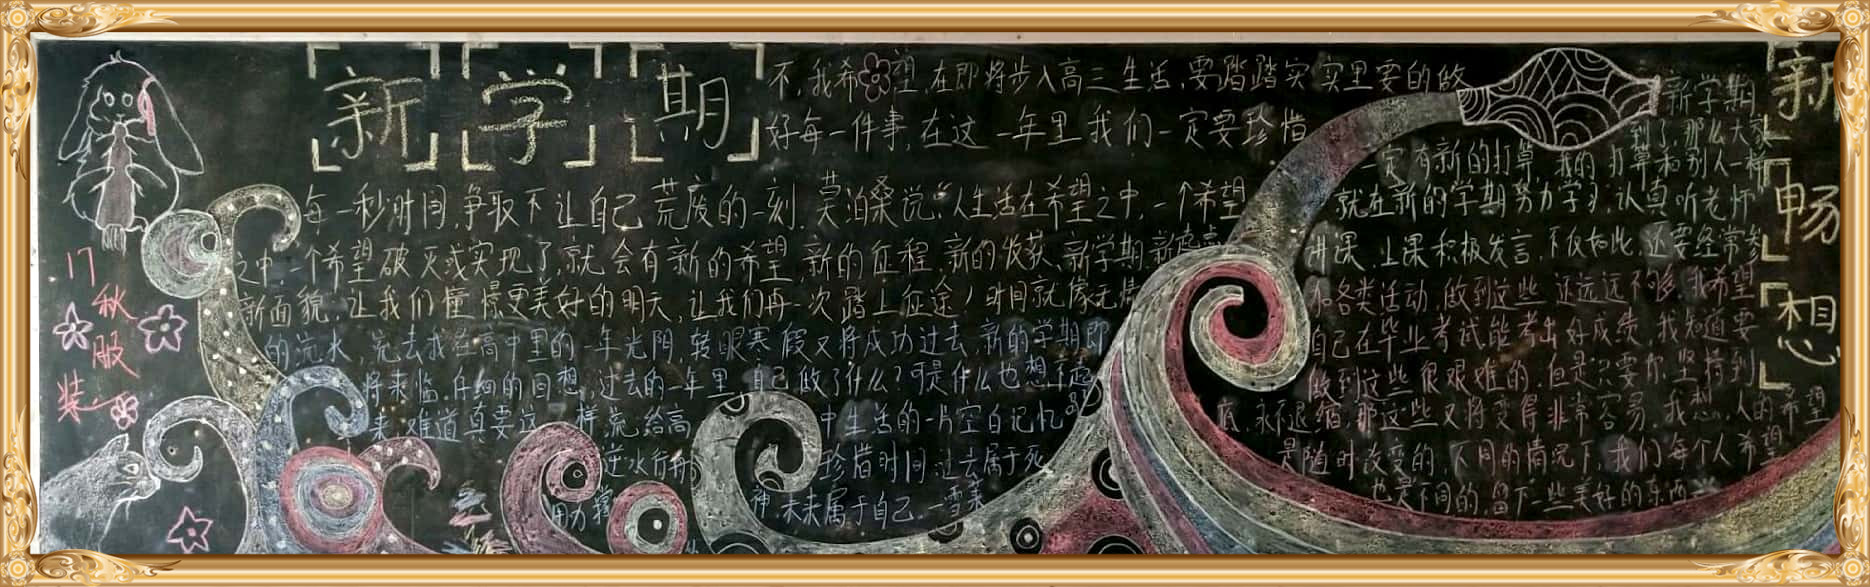 新学期
不,我希望,在即将步入高三生活,要踏踏实实里要的做
好每一件事,在这一年里我们一定要珍惜
每一秒时间,争取不让自己荒废的一刻.莫泊桑说:“人生活在希望之中.一个希望
之中,一个希望破灭或实现了,就会有新的希望.新的征程,新的收获、新学期.新
新面貌,让我们憧憬更美好的明天,让我们再一次踏上征途!时间就像无情
的流水,流去我在高中里的一年光阴,转眼寒假又将成功过去,新的学期即
将来临.仔细的回想,过去的一年里,自己做了什么?可是什么也想不起
来,难道真要这样荒给高中生活的一片空白记忆吗
逆水行舟 珍惜时间 过去属于死
用力 神,未来属于自己.一雪莱
17
秋
服
装
新
畅
想
新学期
到了,那么大家
一定有新的打算,我的打算和别人一样
就在新的学期努力学习,认真听老师
讲课,上课积极发言,不仅如此,还要经常参
加各类活动,做到这些还远远不够,我希望
自己在毕业考试能考出好成绩,我知道要
做到这些很艰难的,但是只要你坚持到
底,永不退缩,那这些又将变得非常容易,我想,人的希望
是随时改变的,不同的情况下,我们每个人希望
也是不同的,留下一些美好的东西